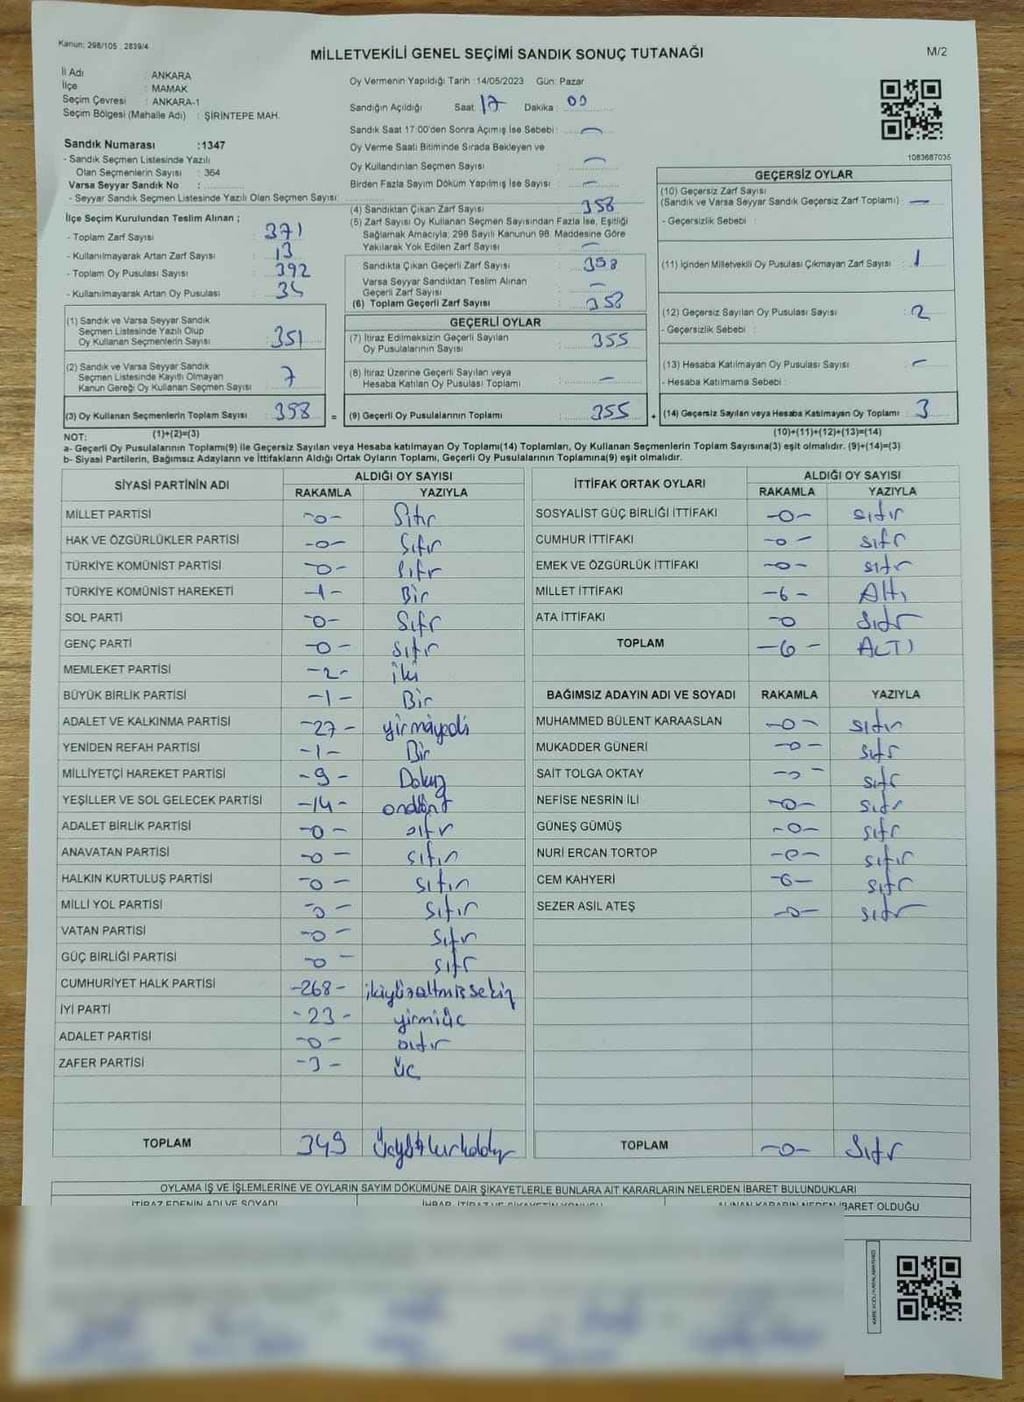 Kanun: 298/105 , 2839/4
MİLLETVEKİLİ GENEL SEÇİMİ SANDIK SONUÇ TUTANAĞI
M/2
İl Adı : ANKARA
İlçe : MAMAK
Seçim Çevresi : ANKARA-1
Seçim Bölgesi (Mahalle Adı) : ŞİRİNTEPE MAH.
Sandık Numarası :1347
- Sandık Seçmen Listesinde Yazılı
Olan Seçmenlerin Sayısı : 364
Varsa Seyyar Sandık No :
- Seyyar Sandık Seçmen Listesinde Yazılı Olan Seçmen Sayısı
İlçe Seçim Kurulundan Teslim Alınan ;
- Toplam Zarf Sayısı : 371
- Kullanılmayarak Artan Zarf Sayısı : 13
- Toplam Oy Pusulası Sayısı : 392
- Kullanılmayarak Artan Oy Pusulası : 34
(1) Sandık ve Varsa Seyyar Sandık
Seçmen Listesinde Yazılı Olup
Oy Kullanan Seçmenlerin Sayısı : 351
(2) Sandık ve Varsa Seyyar Sandık
Seçmen Listesinde Kayıtlı Olmayan
Kanun Gereği Oy Kullanan Seçmen Sayısı : 7
(3) Oy Kullanan Seçmenlerin Toplam Sayısı : 358 =
(1)+(2)=(3)
Oy Vermenin Yapıldığı Tarih :14/05/2023 Gün: Pazar
Sandığın Açıldığı Saat 17 Dakika : 00
Sandık Saat 17:00'den Sonra Açımış İse Sebebi : -
Oy Verme Saati Bitiminde Sırada Bekleyen ve
Oy Kullandırılan Seçmen Sayısı : -
Birden Fazla Sayım Döküm Yapılmış İse Sayısı : -
(4) Sandıktan Çıkan Zarf Sayısı : 358
(5) Zarf Sayısı Oy Kullanan Seçmen Sayısından Fazla İse, Eşitliği
Sağlamak Amacıyla; 298 Sayılı Kanunun 98. Maddesine Göre
Yakılarak Yok Edilen Zarf Sayısı : -
Sandıkta Çıkan Geçerli Zarf Sayısı : 358
Varsa Seyyar Sandıktan Teslim Alınan
Geçerli Zarf Sayısı : -
(6) Toplam Geçerli Zarf Sayısı : 358
GEÇERLİ OYLAR
(7) İtiraz Edilmeksizin Geçerli Sayılan
Oy Pusulalarının Sayısı : 355
(8) İtiraz Üzerine Geçerli Sayılan veya
Hesaba Katılan Oy Pusulası Toplamı : -
(9) Geçerli Oy Pusulalarının Toplamı : 355 +
1083687035
GEÇERSİZ OYLAR
(10) Geçersiz Zarf Sayısı
(Sandık ve Varsa Seyyar Sandık Geçersiz Zarf Toplamı) : -
- Geçersizlik Sebebi :
(11) İçinden Milletvekili Oy Pusulası Çıkmayan Zarf Sayısı : 1
(12) Geçersiz Sayılan Oy Pusulası Sayısı : 2
- Geçersizlik Sebebi :
(13) Hesaba Katılmayan Oy Pusulası Sayısı : -
- Hesaba Katılmama Sebebi :
(14) Geçersiz Sayılan veya Hesaba Katılmayan Oy Toplamı : 3
(10)+(11)+(12)+(13)=(14)
NOT:
a- Geçerli Oy Pusulalarının Toplamı(9) ile Geçersiz Sayılan veya Hesaba katılmayan Oy Toplamı(14) Toplamları, Oy Kullanan Seçmenlerin Toplam Sayısına(3) eşit olmalıdır. (9)+(14)=(3)
b- Siyasi Partilerin, Bağımsız Adayların ve İttifakların Aldığı Ortak Oyların Toplamı, Geçerli Oy Pusulalarının Toplamına(9) eşit olmalıdır.
SİYASİ PARTİNİN ADI ALDIĞI OY SAYISI
RAKAMLA YAZIYLA
MİLLET PARTİSİ -0- Sıfır
HAK VE ÖZGÜRLÜKLER PARTİSİ -0- Sıfır
TÜRKİYE KOMÜNİST PARTİSİ -0- Sıfır
TÜRKİYE KOMÜNİST HAREKETİ -1- Bir
SOL PARTİ -0- Sıfır
GENÇ PARTİ -0- sıfır
MEMLEKET PARTİSİ -2- iki
BÜYÜK BİRLİK PARTİSİ -1- Bir
ADALET VE KALKINMA PARTİSİ -27- yirmiyedi
YENİDEN REFAH PARTİSİ -1- Bir
MİLLİYETÇİ HAREKET PARTİSİ -9- Dokuz
YEŞİLLER VE SOL GELECEK PARTİSİ -14- ondört
ADALET BİRLİK PARTİSİ -0- sıfır
ANAVATAN PARTİSİ -0- sıfır
HALKIN KURTULUŞ PARTİSİ -0- sıfır
MİLLİ YOL PARTİSİ -0- sıfır
VATAN PARTİSİ -0- sıfır
GÜÇ BİRLİĞİ PARTİSİ -0- sıfır
CUMHURİYET HALK PARTİSİ -268- ikiyüzaltmışsekiz
İYİ PARTİ -23- yirmiüç
ADALET PARTİSİ -0- sıfır
ZAFER PARTİSİ -3- üç
TOPLAM 349 Üçyüzkırkdokuz
İTTİFAK ORTAK OYLARI ALDIĞI OY SAYISI
RAKAMLA YAZIYLA
SOSYALİST GÜÇ BİRLİĞİ İTTİFAKI -0- sıfır
CUMHUR İTTİFAKI -0- sıfır
EMEK VE ÖZGÜRLÜK İTTİFAKI -0- sıfır
MİLLET İTTİFAKI -6- Altı
ATA İTTİFAKI -0 Sıfır
TOPLAM -6- ALTI
BAĞIMSIZ ADAYIN ADI VE SOYADI RAKAMLA YAZIYLA
MUHAMMED BÜLENT KARAASLAN -0- sıfır
MUKADDER GÜNERİ -0- sıfır
SAİT TOLGA OKTAY -0- sıfır
NEFİSE NESRİN İLİ -0- sıfır
GÜNEŞ GÜMÜŞ -0- sıfır
NURİ ERCAN TORTOP -0- sıfır
CEM KAHYERİ -0- sıfır
SEZER ASIL ATEŞ -0- sıfır
TOPLAM -0- Sıfır
OYLAMA İŞ VE İŞLEMLERİNE VE OYLARIN SAYIM DÖKÜMÜNE DAİR ŞİKAYETLERLE BUNLARA AİT KARARLARIN NELERDEN İBARET BULUNDUKLARI
İTİRAZ EDENİN ADI VE SOYADI